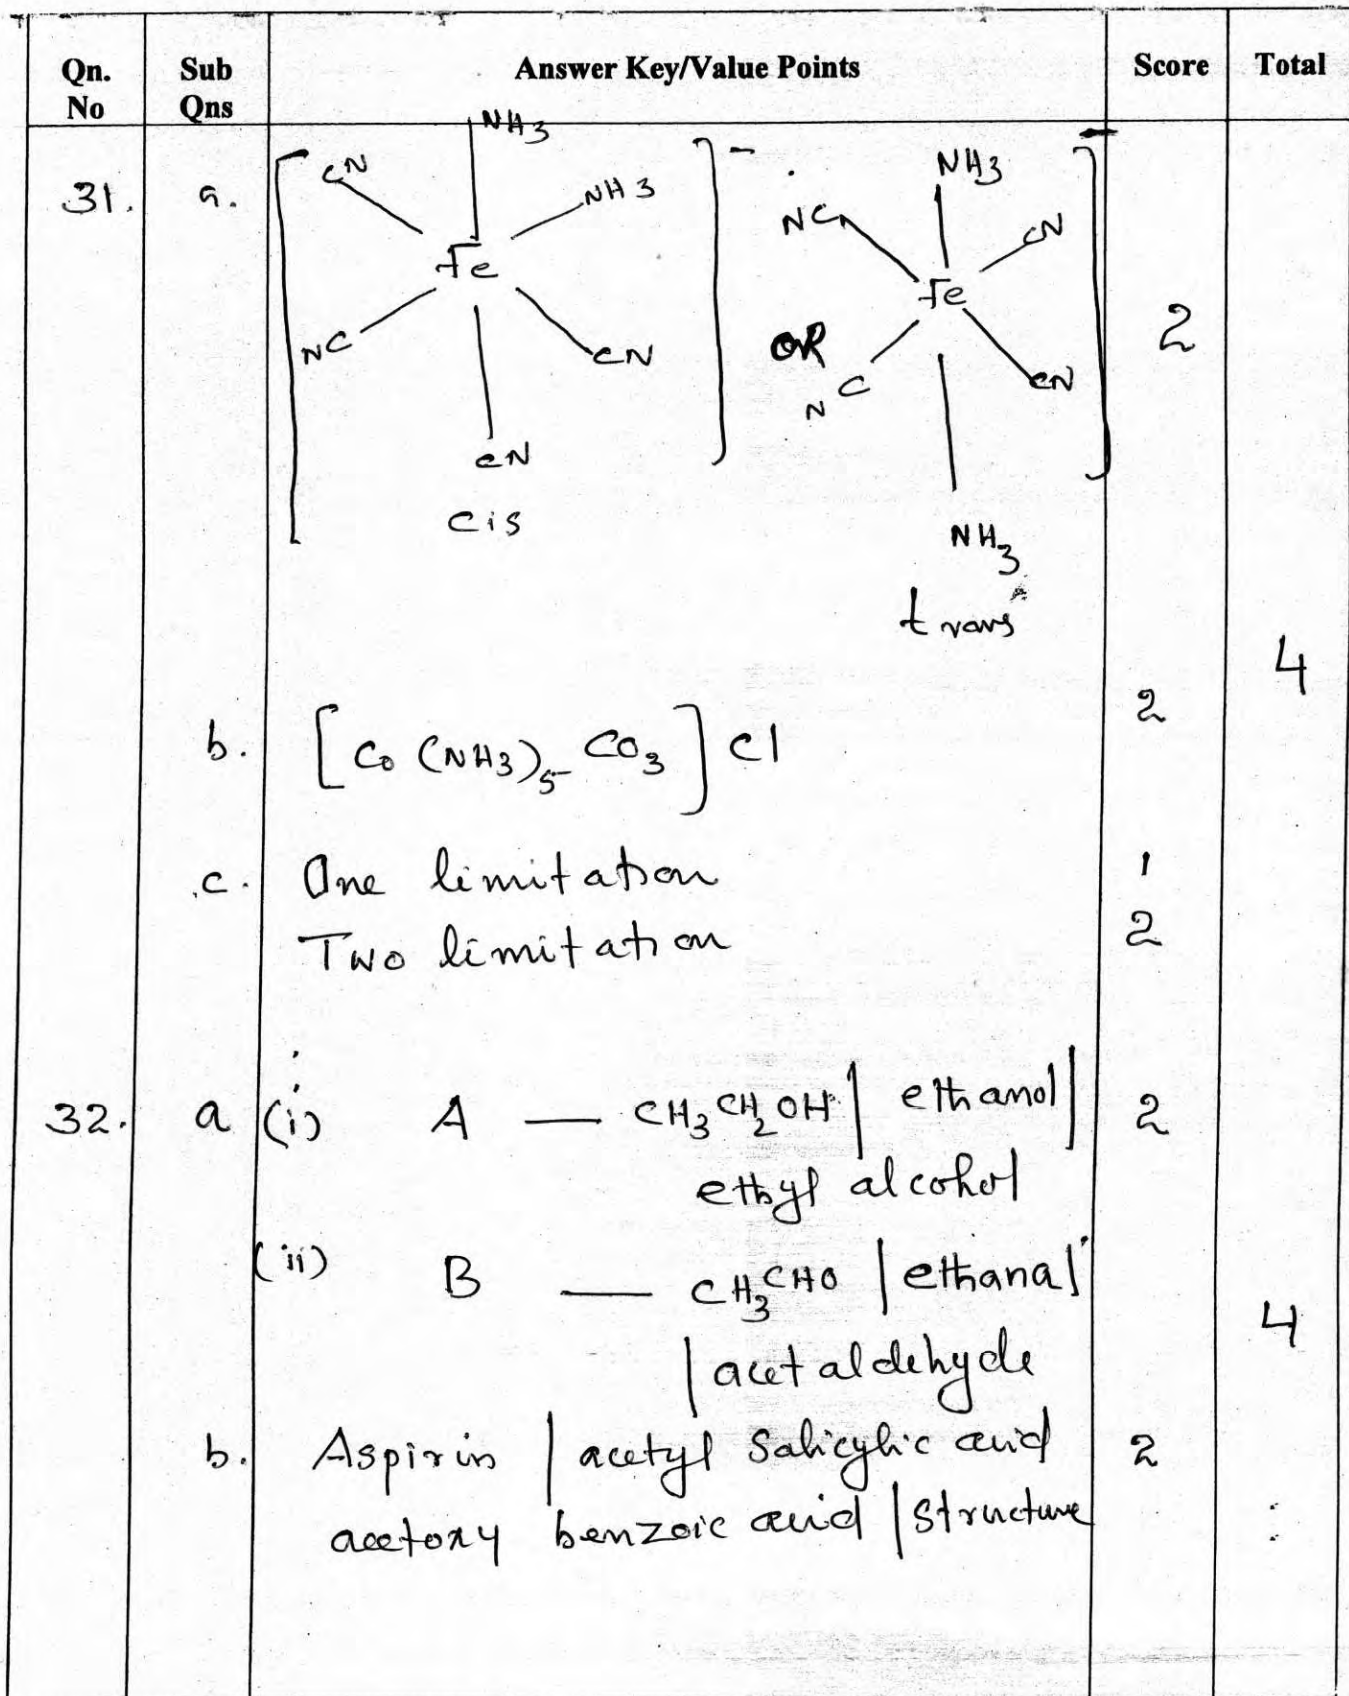 Qn. No Sub Qns Answer Key/Value Points Score Total
31. a.
NH3
CN NH3
Fe
NC CN
CN
cis
-
OR
NH3
NC CN
Fe
NC CN
NH3
trans
-
2
4
b. [Co (NH3)5 CO3] Cl 2
c. One limitation 1
Two limitation 2
32. a (i) A — CH3CH2OH | ethanol | 2
ethyl alcohol
(ii) B — CH3CHO | ethanal
| acetaldehyde
4
b. Aspirin | acetyl Salicylic acid 2
acetoxy benzoic acid | Structure